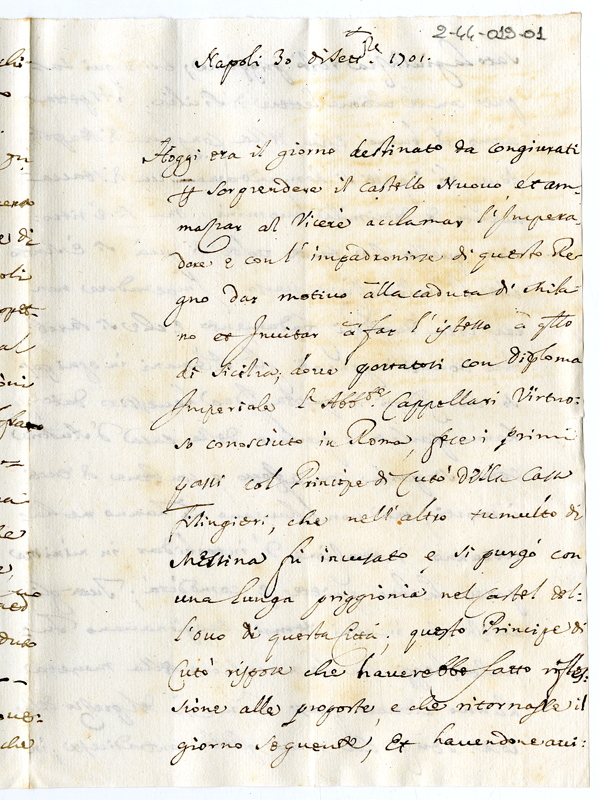 2-44-013-01
Napoli 30 di Sett.re 1701.
Hoggi era il giorno destinato da congiurati
sorprendere il castello Nuovo et am-
mazzar al Vicerè acclamar l'Impera-
dore e con l'impadronirse di questo Re-
gno dar motivo alla caduta di Mila-
no et Invitar à far l'istesso à qllo
di Sicilia, dove portatosi con Diploma
Imperiale l'Abb.te Cappellari Virtuo:
so conosciuto in Roma, fece i primi
passi col Principe di Cutò della Casa
filingieri, che nell'altro tumulto di
Messina fù incusato e si purgò con
una lunga priggionia nel Castel del-
l'ovo di questa Città; questo Principe di
Cutò rispose che haverebbe fatto rifles-
sione alle proposte, e che ritornasse il
giorno seguente, Et havendone avvi: